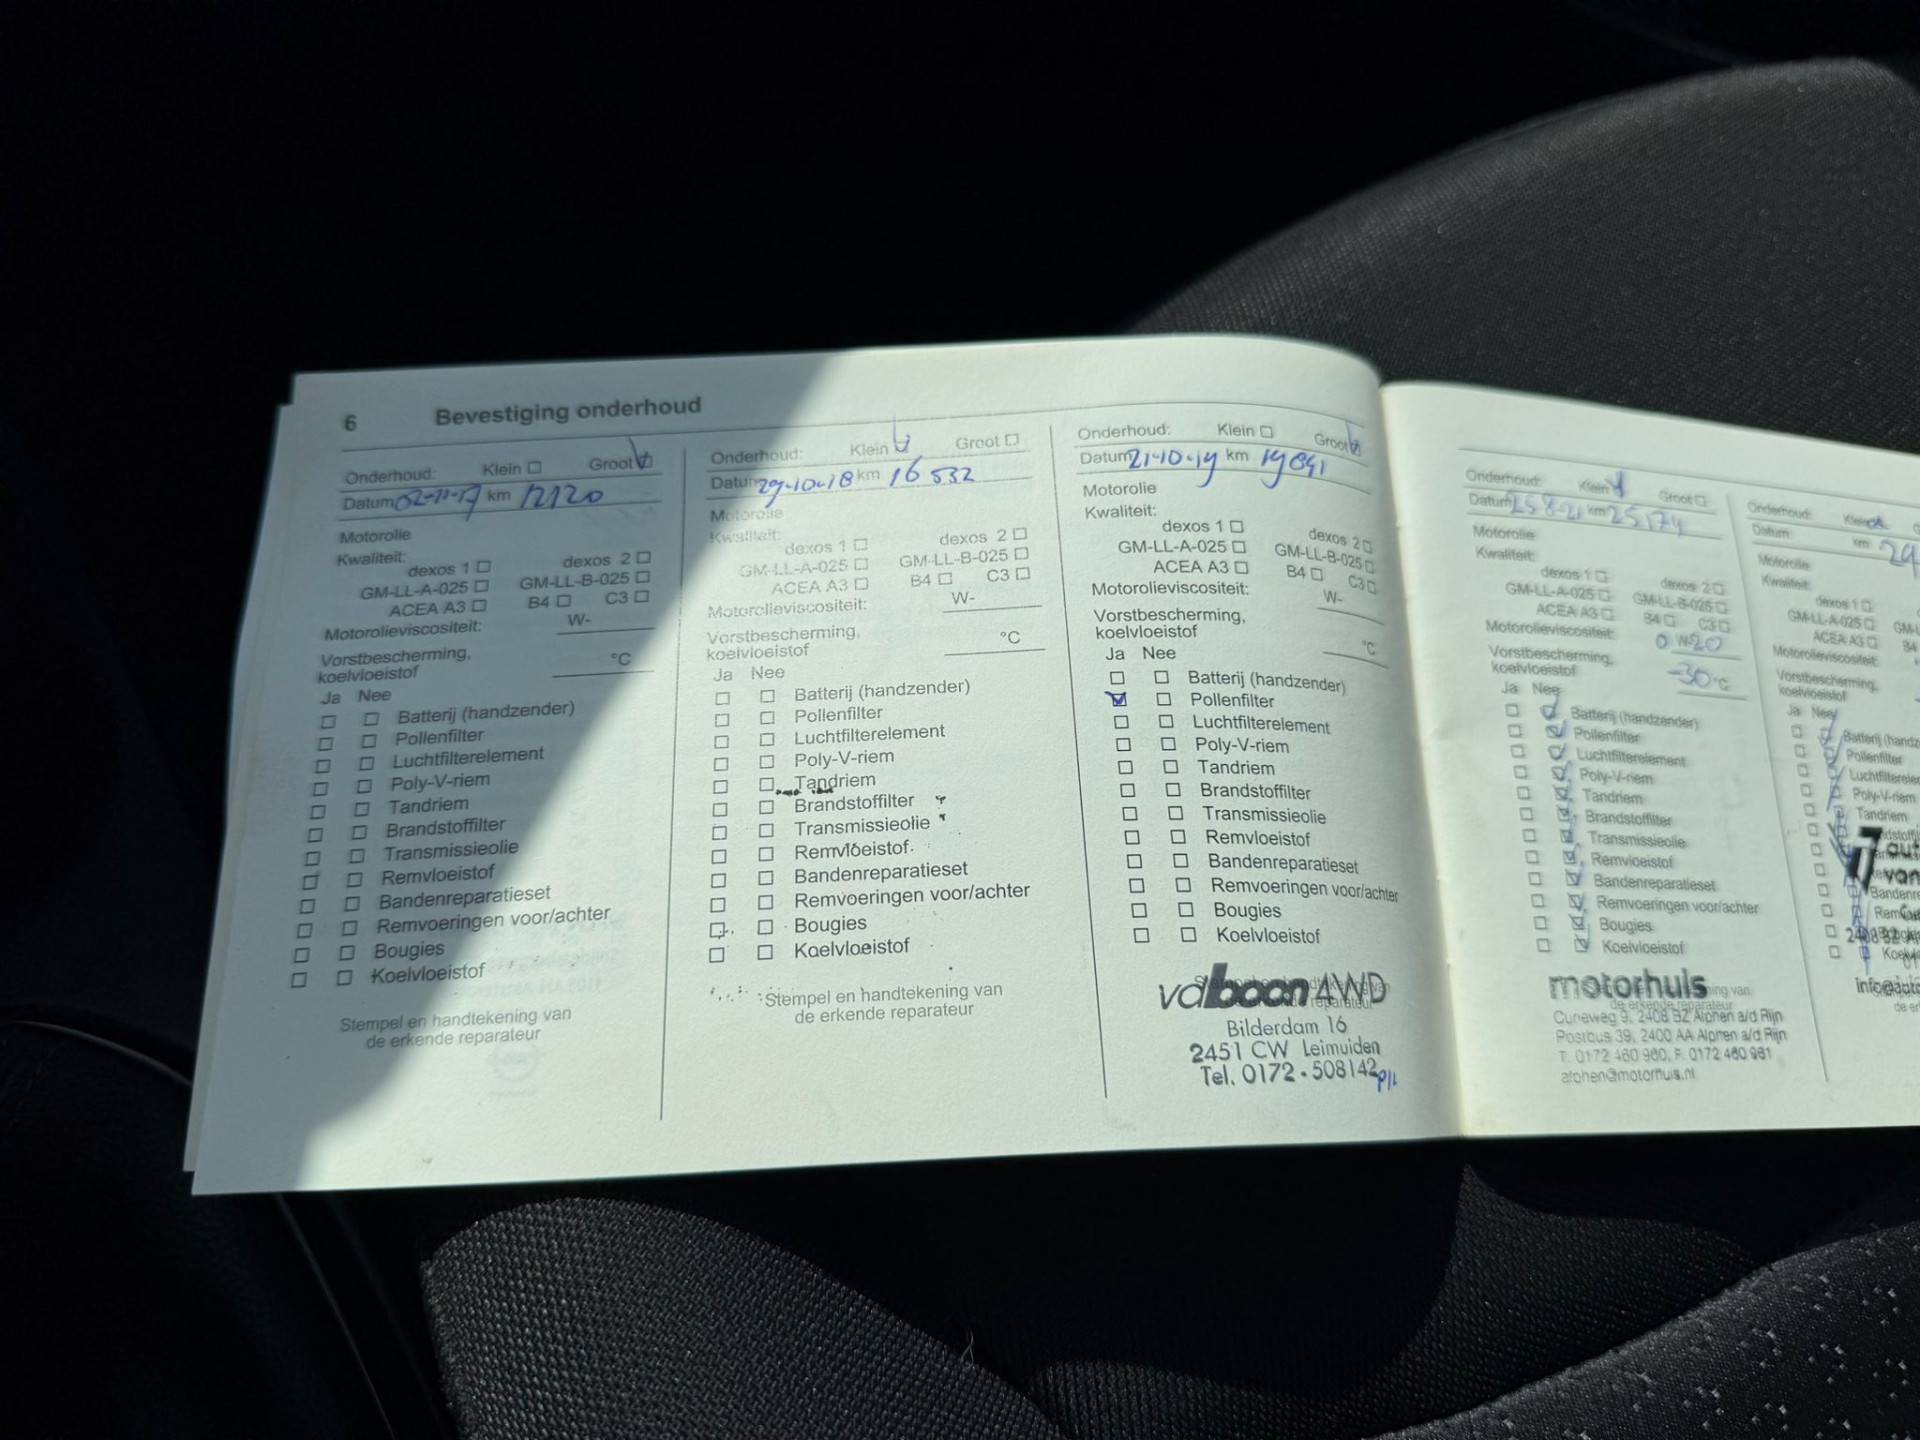 6 Bevestiging onderhoud
Onderhoud: Klein Groot
Datum 02-11-17 km 12120
Motorolie
Kwaliteit:
dexos 1 dexos 2
GM-LL-A-025 GM-LL-B-025
ACEA A3 B4 C3
Motorolieviscositeit: W-
Vorstbescherming,
koelvloeistof °C
Ja Nee
Batterij (handzender)
Pollenfilter
Luchtfilterelement
Poly-V-riem
Tandriem
Brandstoffilter
Transmissieolie
Remvloeistof
Bandenreparatieset
Remvoeringen voor/achter
Bougies
Koelvloeistof
Stempel en handtekening van
de erkende reparateur
Onderhoud: Klein Groot
Datum 29-10-18 km 16 532
Motorolie
Kwaliteit:
dexos 1 dexos 2
GM-LL-A-025 GM-LL-B-025
ACEA A3 B4 C3
Motorolieviscositeit: W-
Vorstbescherming,
koelvloeistof °C
Ja Nee
Batterij (handzender)
Pollenfilter
Luchtfilterelement
Poly-V-riem
Tandriem
Brandstoffilter
Transmissieolie
Remvloeistof
Bandenreparatieset
Remvoeringen voor/achter
Bougies
Koelvloeistof
Stempel en handtekening van
de erkende reparateur
Onderhoud: Klein Groot
Datum 21-10-19 km 19841
Motorolie
Kwaliteit:
dexos 1 dexos 2
GM-LL-A-025 GM-LL-B-025
ACEA A3 B4 C3
Motorolieviscositeit: W-
Vorstbescherming,
koelvloeistof °C
Ja Nee
Batterij (handzender)
Pollenfilter
Luchtfilterelement
Poly-V-riem
Tandriem
Brandstoffilter
Transmissieolie
Remvloeistof
Bandenreparatieset
Remvoeringen voor/achter
Bougies
Koelvloeistof
4WD
Bilderdam 16
2451 CW Leimuiden
Tel. 0172-508142
Onderhoud: Klein Groot
Datum 25-8-21 km 25174
Motorolie
Kwaliteit:
dexos 1 dexos 2
GM-LL-A-025 GM-LL-B-025
ACEA A3 B4 C3
Motorolieviscositeit: 0 W-20
Vorstbescherming,
koelvloeistof -30 °C
Ja Nee
Batterij (handzender)
Pollenfilter
Luchtfilterelement
Poly-V-riem
Tandriem
Brandstoffilter
Transmissieolie
Remvloeistof
Bandenreparatieset
Remvoeringen voor/achter
Bougies
Koelvloeistof
motorhuis
de erkende reparateur
Cuneweg 9, 2408 BZ Alphen a/d Rijn
Postbus 39, 2400 AA Alphen a/d Rijn
T. 0172 460 960, F. 0172 460 981
alphen@motorhuis.nl
Onderhoud:
Datum km
Motorolie
Kwaliteit:
dexos 1
GM-LL-A-025
ACEA A3
Motorolieviscositeit:
Vorstbescherming,
koelvloeistof
Ja Nee
Pollenfilter
Poly-V-riem
Tandriem